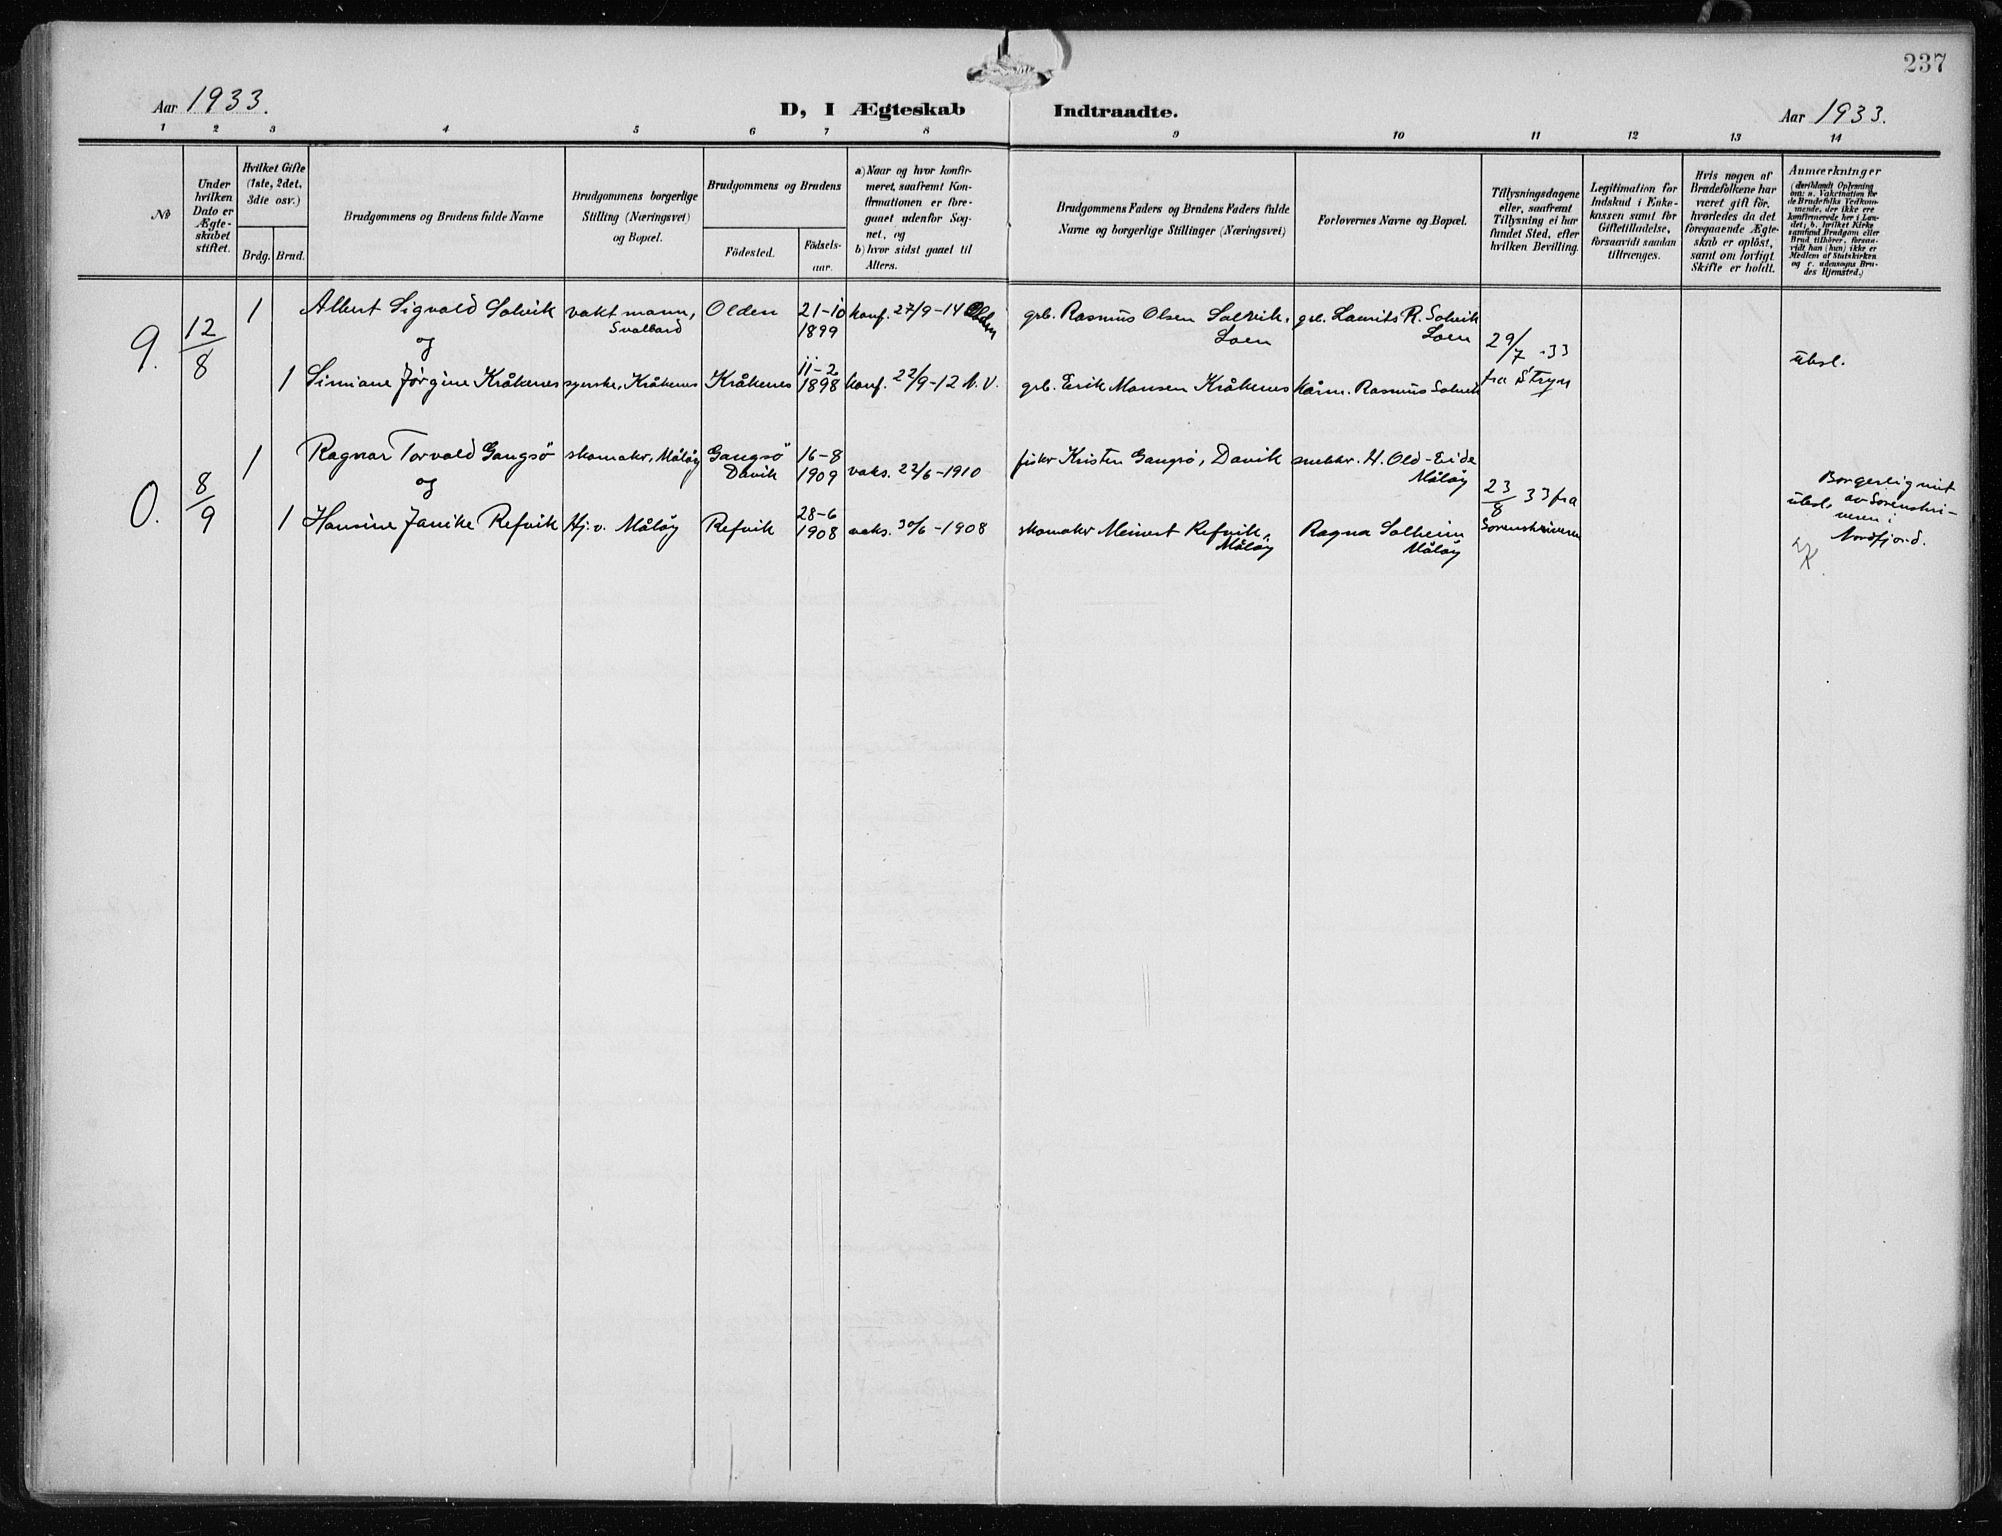 237
Aar 1933.
D, I Ægteskab Indtraadte.
Aar 1933.
1 2 3 4 5 6 7 8 9 10 11 12 13 14
№
Under
hvilken
Dato er
Ægte-
skabet
stiftet.
Hvilket Gifte
(1ste, 2det,
3die osv.)
Brdg. Brud.
Brudgommens og Brudens fulde Navne
Brudgommens borgerlige
Stilling (Næringsvei)
og Bopæl.
Brudgommens og Brudens
Födested.
Födsels-
aar.
a) Naar og hvor konfir-
meret, saafremt Kon-
firmationen er fore-
gaaet udenfor Sog-
net, og
b) hvor sidst gaaet til
Alters.
Brudgommens Faders og Brudens Faders fulde
Navne og borgerlige Stillinger (Næringsvei)
Forlovernes Navne og Bopæl.
Tillysningsdagene
eller, saafremt
Tillysning ei har
fundet Sted, efter
hvilken Bevilling.
Legitimation for
Indskud i Enke-
kassen samt for
Giftetilladelse,
forsaavidt saadan
tiltrænges.
Hvis nogen af
Brudefolkene har
været gift för,
hvorledes da det
foregaaende Ægte-
skab er oplöst,
samt om lovligt
Skifte er holdt.
Anmærkninger
(deriblandt Oplysning
om: a. Vaksination for
de Brudefolks Vedkom-
mende, der ikke ere
konfirmerede her i Lan-
det; b. hvilket Kirke
samfund Brudgom eller
Brud tilhörer, forsaa-
vidt han (hun) ikke er
Medlem af Statskirken
og c. udensogns Bru-
des Hjemsted.)
9. 12/8 1 Albert Sigvald Solvik vaktmann, Svalbard Olden 21-10 1899 konf. 27/9-14 Olden grb. Rasmus Olsen Solvik, Loen grb. Laurits R. Solvik Loen 29/7 -33 fra Stryn ubsl.
og
1 Simiane Jørgine Kråkenes syerske, Kråkenes Kråkenes 11-2 1898 konf. 22/9-12 N.V. grb. Erik Monsen Kråkenes Kårm. Rasmus Solvik
0. 8/9 1 Ragnar Torvald Gangsö skomakr, Måløy Gangsö Davik 16-8 1909 vaks. 22/6-1910 fiskr Kristen Gangsö, Davik snekkr. H. Old-Eide Måløy 23/8 33 fra Sorenskriveren Borgerlig vit
og
1 Hansine Janike Refvik Hj.v. Måløy Refvik 28-6 1908 vaks. 30/6-1908 skomakr Meinert Refvik, Måløy Ragna Solheim Måløy ubsl. av Sorenskri-
veren i
Nordfjord.